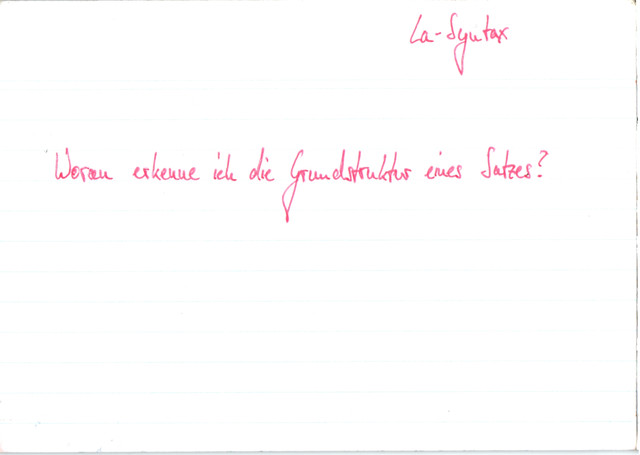 La-Syntax
Woran erkenne ich die Grundstruktur eines Satzes?